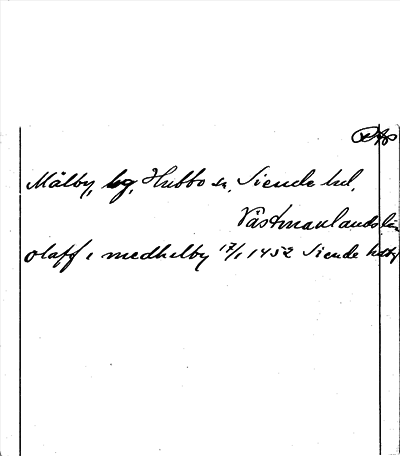 Mälby, bg, Hubbo sn, Siende hd,
Västmanlands län
olaff i medhelby 17/1 1452 Siende